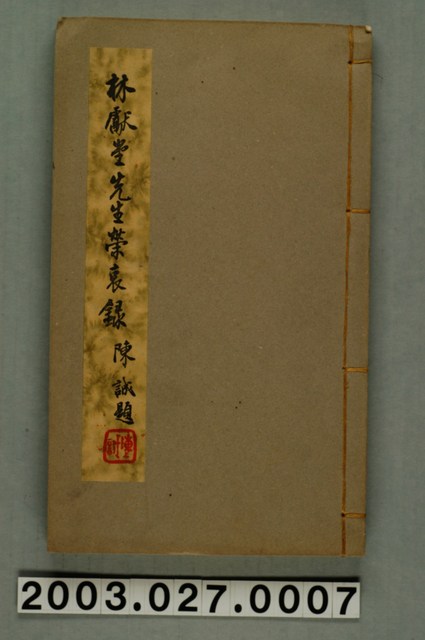 林獻堂先生榮哀錄 陳誠題
2003.027.0007